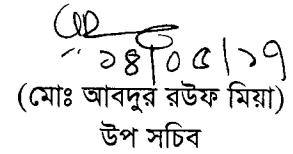 ১৪/০৫/১৭
(মোঃ আবদুর রউফ মিয়া)
উপ সচিব